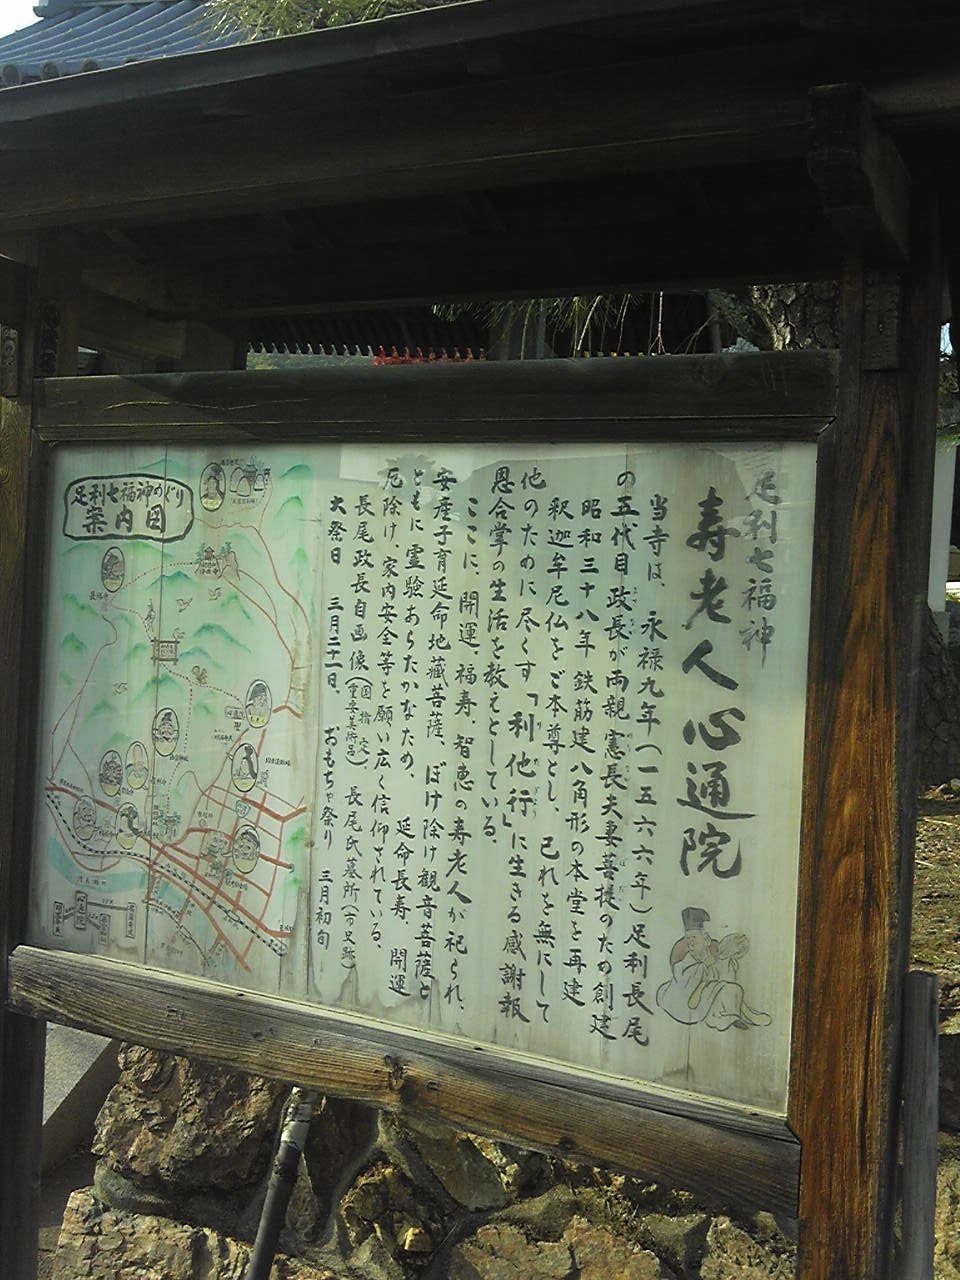 足利七福神
寿老人心通院
当寺は、永禄九年(一五六六年)足利長尾
の五代目政長が両親憲長夫妻菩提のため創建
昭和三十八年鉄筋建八角形の本堂を再建
釈迦牟尼仏をご本尊とし、己れを無にして
他のために尽くす「利他行」に生きる感謝報
恩合掌の生活を教えとしている。
ここに、開運、福寿、智恵の寿老人が祀られ、
安産子育延命地蔵菩薩、ぼけ除け観音菩薩と
ともに霊験あらたかなため、延命長寿、開運
厄除け、家内安全等を願い広く信仰されている。
長尾政長自画像(国指定重要美術品)、長尾氏墓所(市史跡)
大祭日 三月二十一日、おもちゃ祭り 三月初旬
足利七福神めぐり
案内図